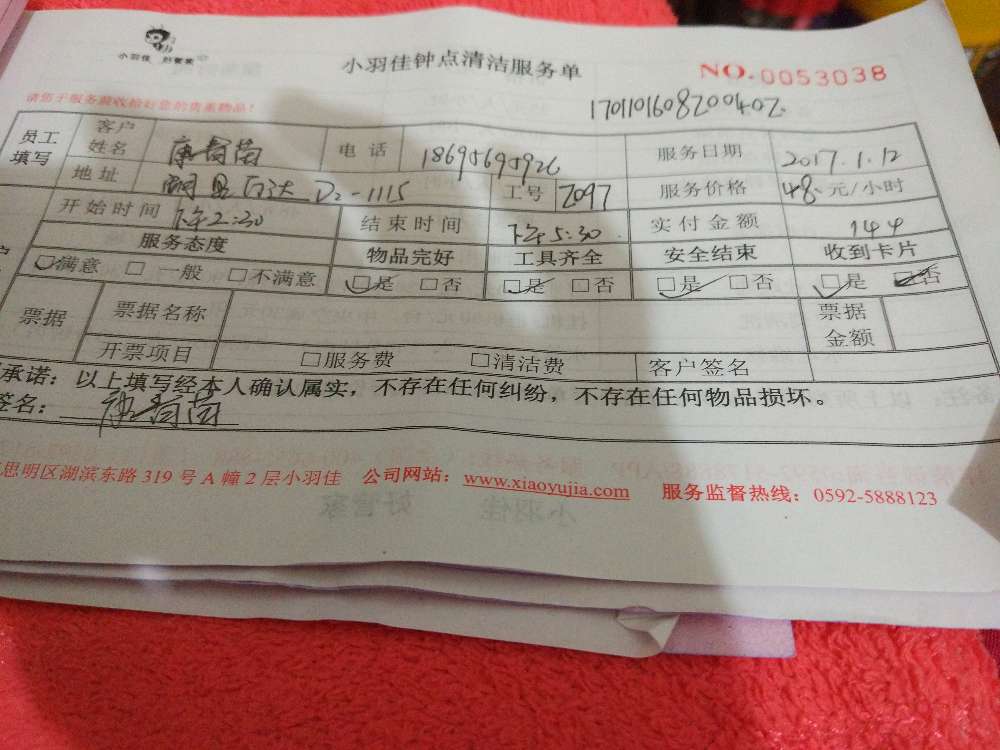 小羽佳 好管家
小羽佳钟点清洁服务单
NO.0053038
请您于服务前收拾好您的贵重物品!
1701101608200402
员工填写 客户姓名 电话 18695695926 服务日期 2017.1.12
地址 万达 D2-1115 工号 7097 服务价格 48 元/小时
开始时间 下午2:30 结束时间 下午5:30 实付金额 144
服务态度 物品完好 工具齐全 安全结束 收到卡片
□满意 □一般 □不满意 □是 □否 □是 □否 □是 □否 □是 □否
票据 票据名称 票据金额
开票项目 □服务费 □清洁费 客户签名
承诺:以上填写经本人确认属实,不存在任何纠纷,不存在任何物品损坏。
签名:
思明区湖滨东路 319 号 A 幢 2 层小羽佳 公司网站:www.xiaoyujia.com 服务监督热线:0592-5888123